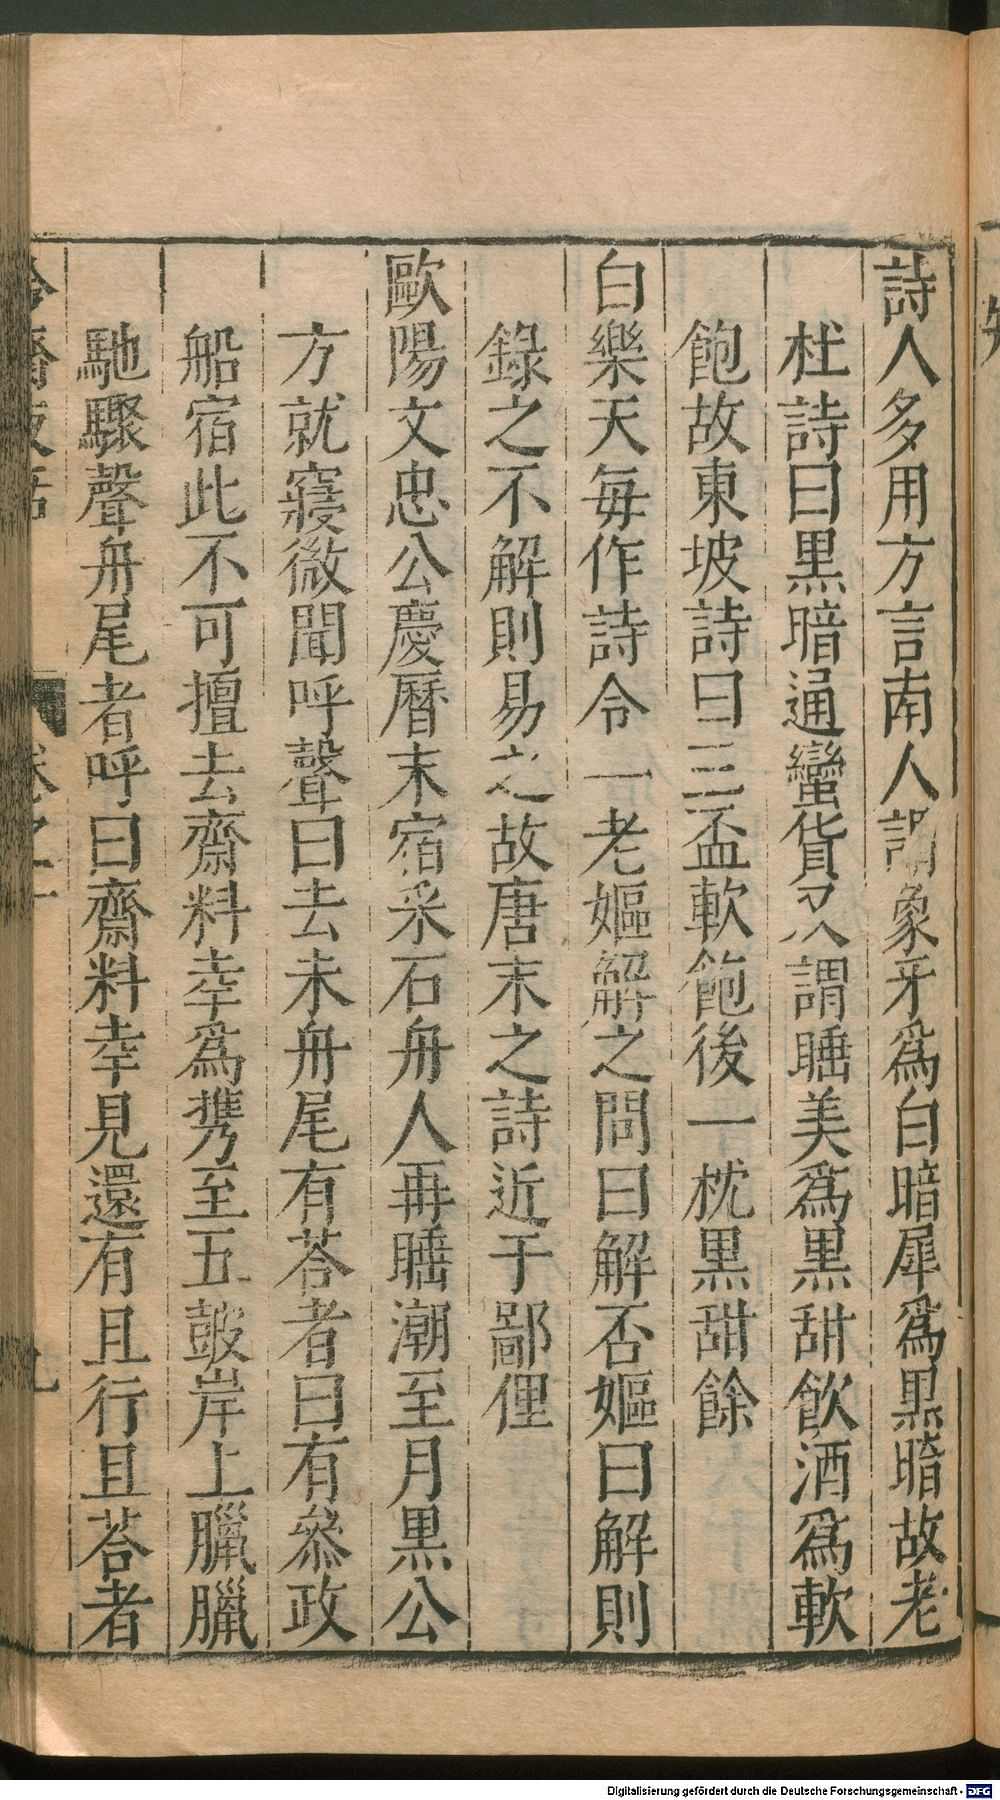 詩人多用方言南人謂象牙爲白暗犀爲黒暗故老
杜詩曰黒暗通蠻貨又人謂睡美爲黒甜飲酒爲軟
飽故東坡詩曰三盃軟飽後一枕黒甜餘
白樂天毎作詩令一老嫗解之問曰解否嫗曰解則
錄之不解則易之故唐末之詩近于鄙俚
歐陽文忠公慶曆末宿采石舟人再睡潮至月黒公
方就寢微聞呼聲曰去未舟尾有荅者曰有叅政
船宿此不可擅去齋料幸爲携至五鼓岸上臘臘
馳驟聲舟尾者呼曰齋料幸見還有且行且荅者
冷齋夜話 卷之二 九
Digitalisierung gefördert durch die Deutsche Forschungsgemeinschaft - DFG